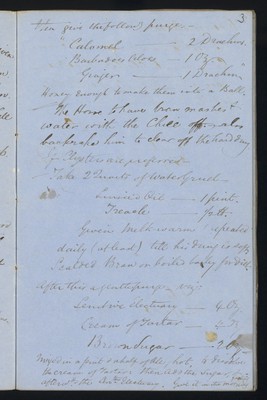 3
then give the following purge.
Calomel — 2 Drachms.
Barbadoes Aloes — 1 Oz
Ginger — 1 Drachm
Honey enough to make them into a Ball.
The Horse to have bran mashes &
water with the Chill off, also
him to the
If Clysters are preferred
Take 2 Quarts of Water Gruel
Linseed Oil — 1 pint.
Treacle —
Given Milk warm repeated
daily (at least) till his dung is soft
Scalded Bran or boiled barley for diet.
After this a gentle purge, viz:
Lenitive Electuary — 4 Oz
Cream of Tartar — 4 Oz
Brown Sugar —
Mixed in a pint & a half of Ale, hot, & dissolve
the cream of Tartar then add the Sugar
afterwards the Electuary. in the morning